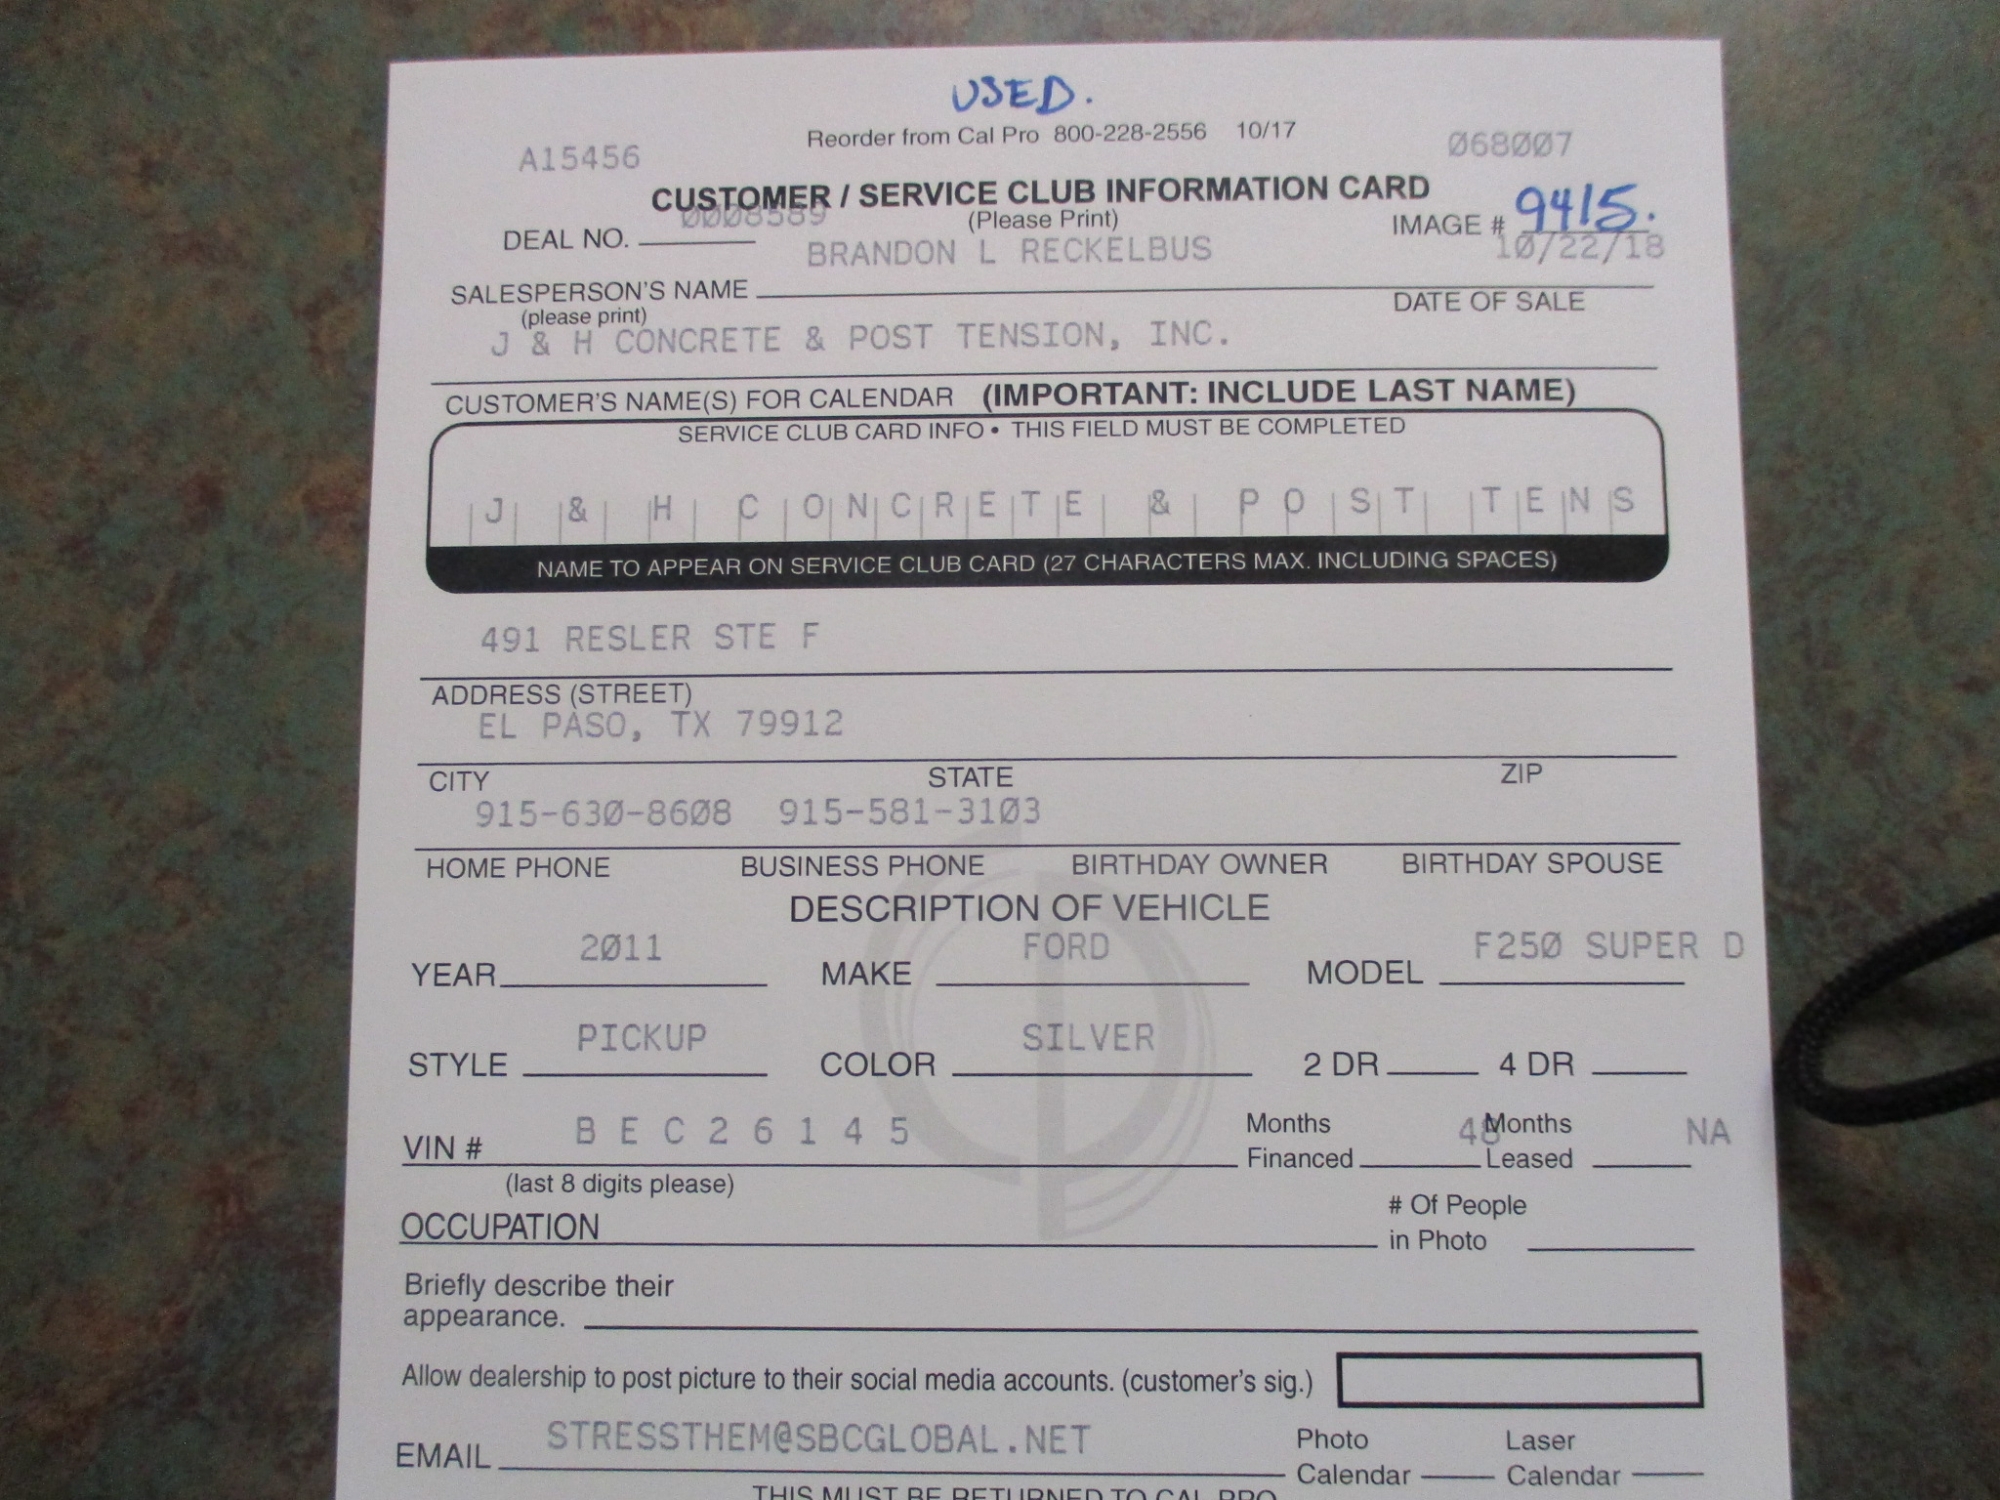 USED.
Reorder from Cal Pro 800-228-2556 10/17
A15456 068007
CUSTOMER / SERVICE CLUB INFORMATION CARD
(Please Print)
DEAL NO. 0008589 IMAGE # 9415.
BRANDON L RECKELBUS 10/22/18
SALESPERSON'S NAME DATE OF SALE
(please print)
J & H CONCRETE & POST TENSION, INC.
CUSTOMER'S NAME(S) FOR CALENDAR (IMPORTANT: INCLUDE LAST NAME)
SERVICE CLUB CARD INFO • THIS FIELD MUST BE COMPLETED
J & H CONCRETE & POST TENS
NAME TO APPEAR ON SERVICE CLUB CARD (27 CHARACTERS MAX. INCLUDING SPACES)
491 RESLER STE F
ADDRESS (STREET)
EL PASO, TX 79912
CITY STATE ZIP
915-630-8608 915-581-3103
HOME PHONE BUSINESS PHONE BIRTHDAY OWNER BIRTHDAY SPOUSE
DESCRIPTION OF VEHICLE
YEAR 2011 MAKE FORD MODEL F250 SUPER D
STYLE PICKUP COLOR SILVER 2 DR 4 DR
VIN # B E C 2 6 1 4 5 Months Financed 48 Months Leased NA
(last 8 digits please)
OCCUPATION # Of People in Photo
Briefly describe their
appearance.
Allow dealership to post picture to their social media accounts. (customer's sig.)
EMAIL STRESSTHEM@SBCGLOBAL.NET Photo Calendar Laser Calendar
THIS MUST BE RETURNED TO CAL PRO